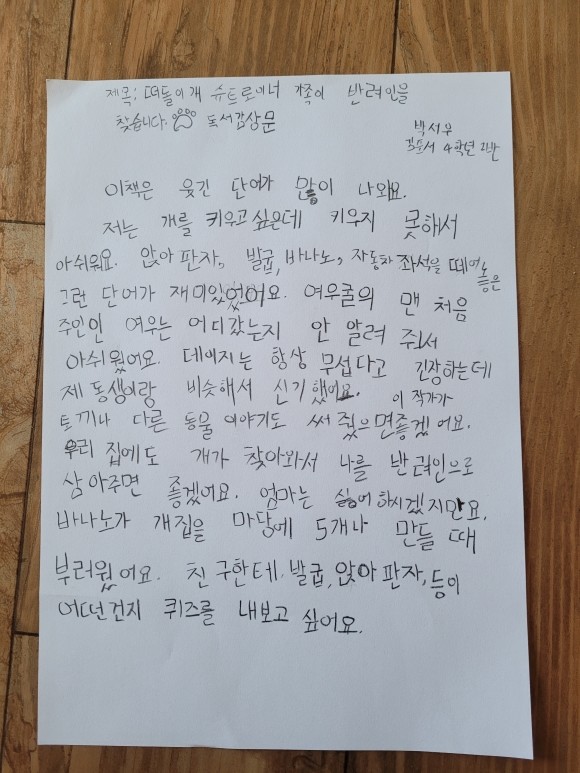 제목: 떠돌이개 슈트로이너 가족이 반려인을
찾습니다. 독서감상문
박서우
4학년 2반
이책은 웃긴 단어가 많이 나와요.
저는 개를 키우고싶은데 키우지 못해서
아쉬워요. 앉아판자, 발굽, 바나노, 자동차 좌석을 떼어놓은
그런 단어가 재미있었어요. 여우굴의 맨 처음
주인인 여우는 어디갔는지 안 알려 줘서
아쉬웠어요. 데이지는 항상 무섭다고 긴장하는데
제 동생이랑 비슷해서 신기했어요. 이 작가가
토끼나 다른 동물 이야기도 써 줬으면좋겠어요.
우리 집에도 개가 찾아와서 나를 반려인으로
삼아주면 좋겠어요. 엄마는 싫어 하시겠지만요.
바나노가 개집을 마당에 5개나 만들 때
부러웠어요. 친구한테. 발굽, 앉아판자, 등이
어떤건지 퀴즈를 내보고 싶어요.